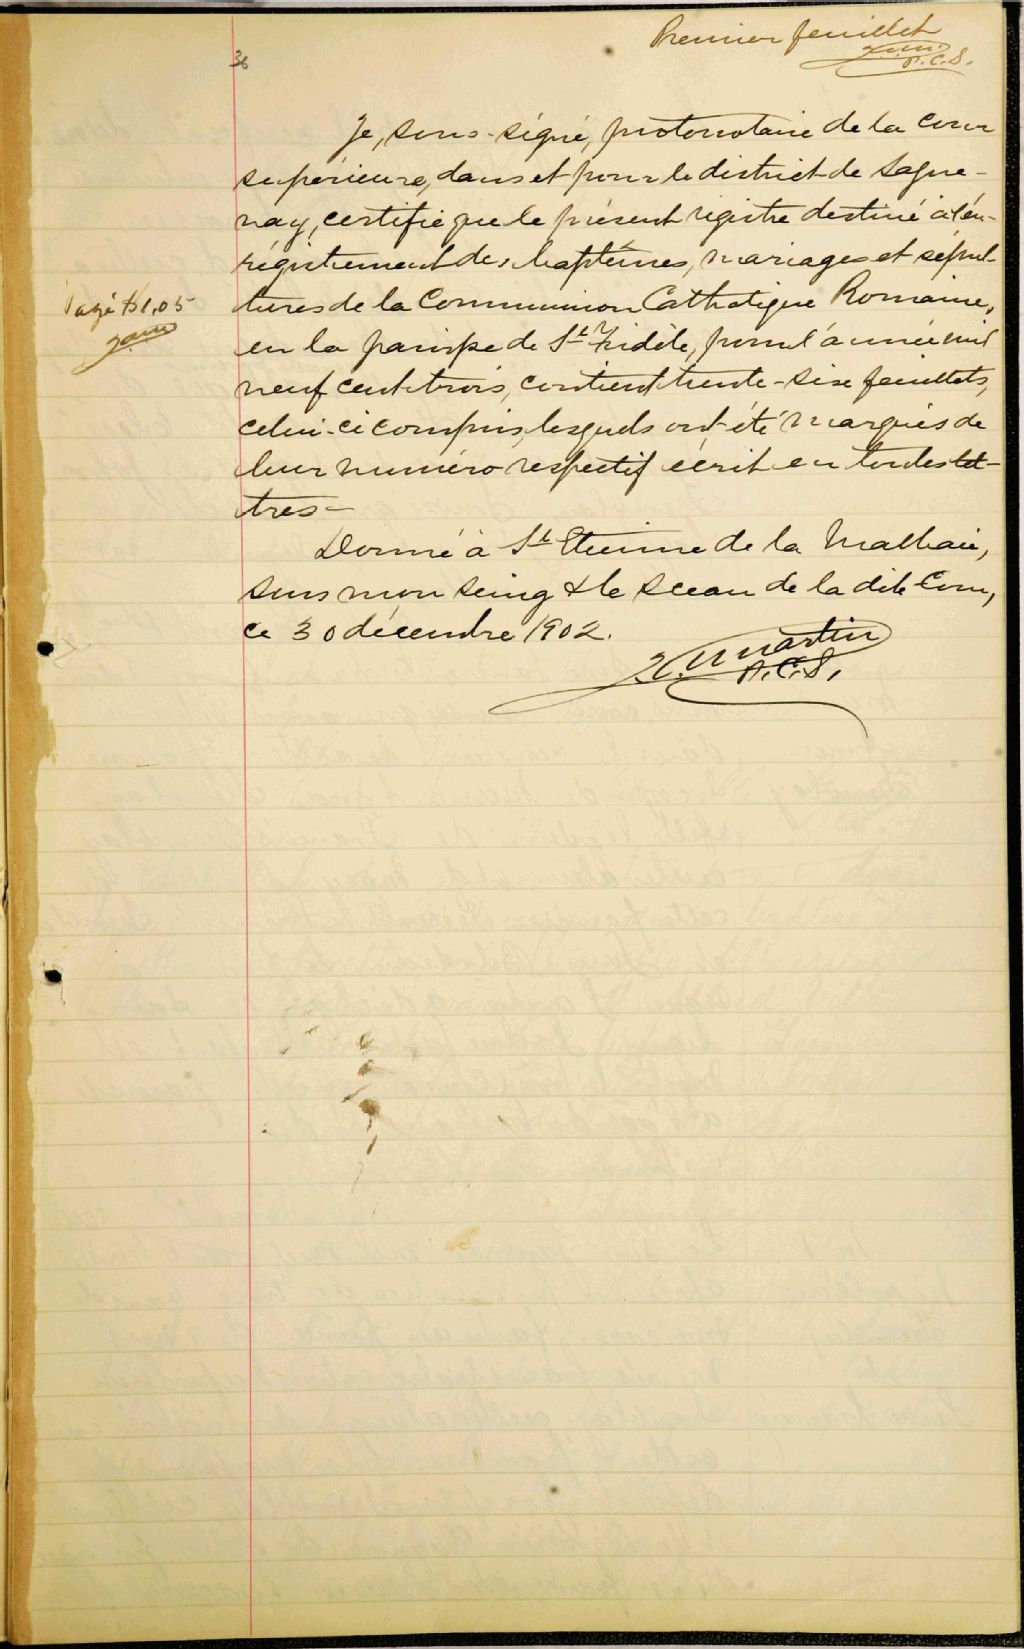 Premier feuillet
P.C.S.
36
Je, sous-signé, protonotaire de la Cour
supérieure, dans et pour le district de Sague-
nay, certifie que le présent régistre destiné à l'en-
régistrement des baptêmes, mariages et sépul-
tures de la Communion Catholique Romaine,
en la paroisse de St Fidèle, pour l'année mil
neuf cent trois, contient trente-six feuillets,
celui-ci compris, lesquels ont été marqués de
leur numéro respectif écrit en toutes let-
tres-
Payé $1,05
Donné à St Etienne de la Malbaie,
sous mon seing & le sceau de la dite Cour,
ce 30 décembre 1902.
Martin
P.C.S.